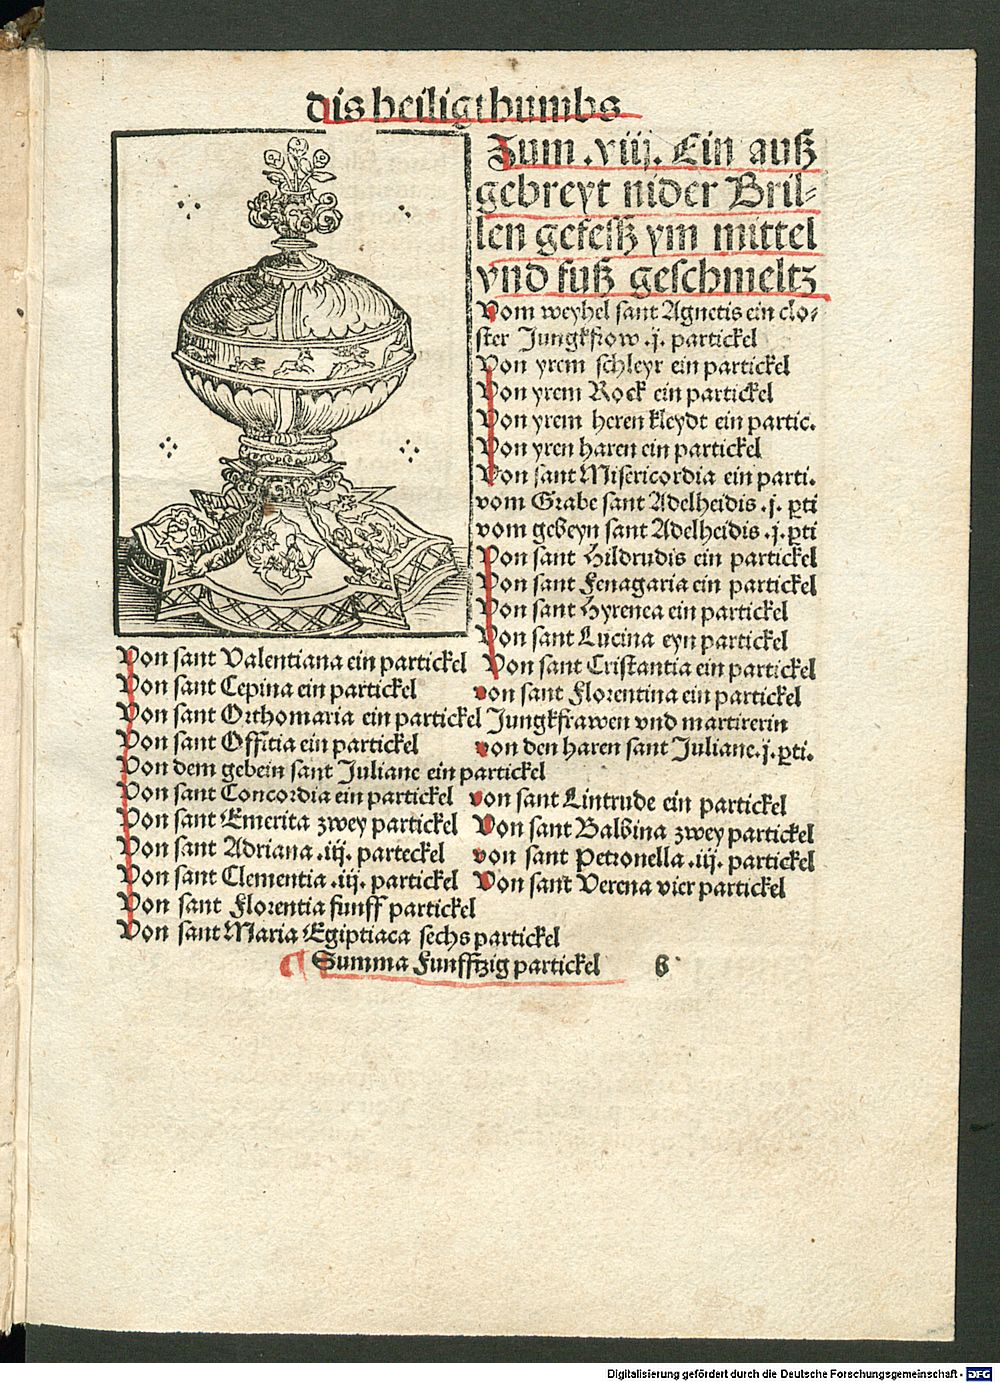 dis heiligthumbs
Zum .viij. Ein auß
gebreyt nider Bril⸗
len gefeß ym mittel
vnd fuß geschmeltz
Vom weyhel sant Agnetis ein clo⸗
ster Jungkfrow .j. partickel
Von yrem schleyr ein partickel
Von yrem Rock ein partickel
Von yrem heren kleydt ein partic.
Von yren haren ein partickel
Von sant Misericordia ein parti.
vom Grabe sant Adelheidis .j. ꝑti
vom gebeyn sant Adelheidis .j. ꝑti
Von sant Hildrudis ein partickel
Von sant Fenagaria ein partickel
Von sant Hyrenea ein partickel
Von sant Lucina eyn partickel
Von sant Valentiana ein partickel Von sant Cristantia ein partickel
Von sant Cepina ein partickel von sant Florentina ein partickel
Von sant Orthomaria ein partickel Jungkfrawen vnd martirerin
Von sant Offitia ein partickel von den haren sant Juliane .j. ꝑti.
Von dem gebein sant Juliane ein partickel
Von sant Concordia ein partickel von sant Lintrude ein partickel
Von sant Emerita zwey partickel Von sant Balbina zwey partickel
Von sant Adriana .iij. parteckel von sant Petronella .iij. partickel
Von sant Clementia .iij. partickel Von sant Verena vier partickel
Von sant Florentia funff partickel
Von sant Maria Egiptiaca sechs partickel
Summa Funfftzig partickel
Digitalisierung gefördert durch die Deutsche Forschungsgemeinschaft - DFG